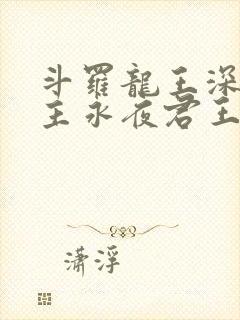 斗羅龍王深
主永夜君王
瀟浮